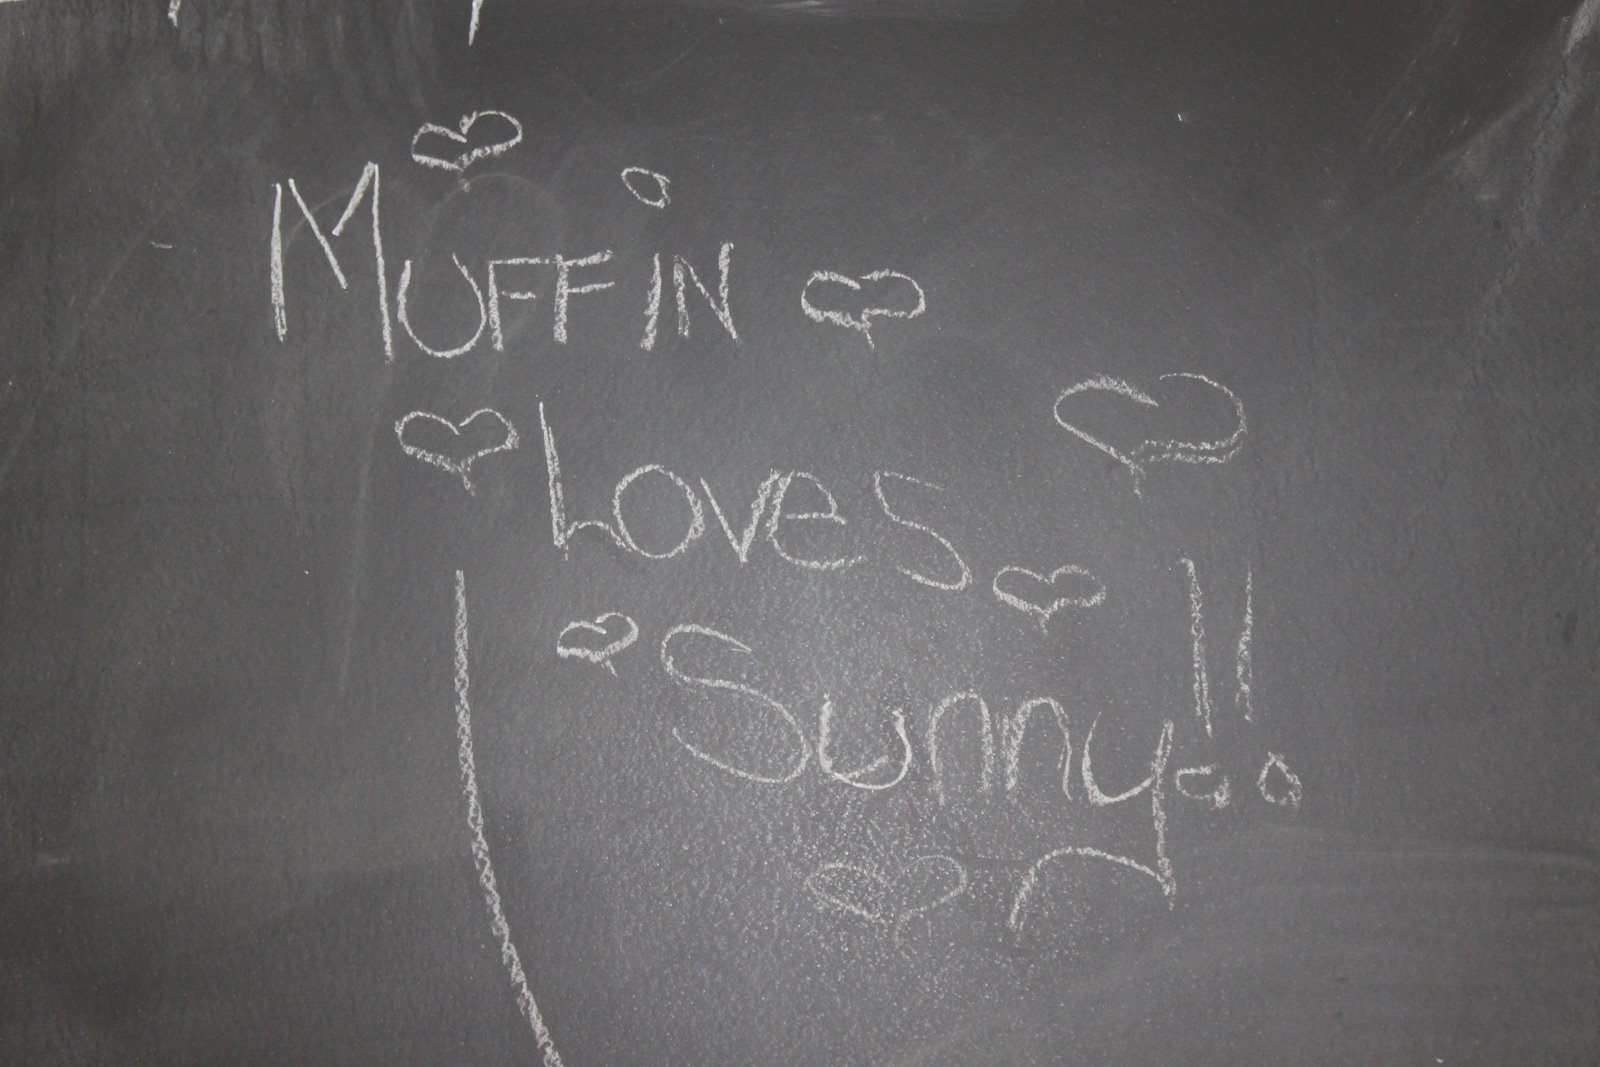 MUFFiN
Loves
Sunny!!